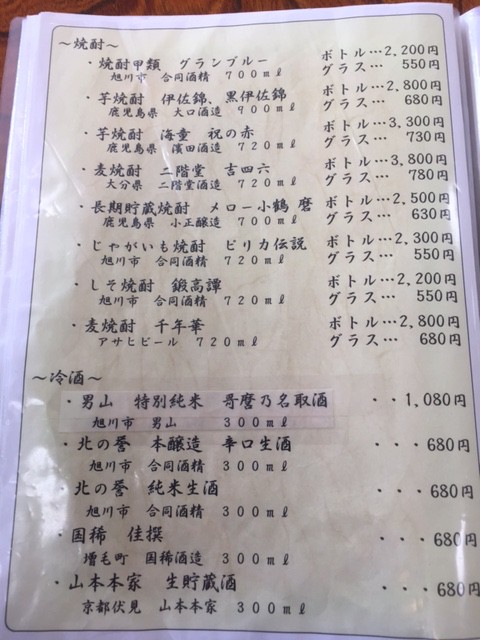 ～焼酎～
・焼酎甲類　グランブルー　ボトル…2,200円
旭川市　合同酒精　700mℓ　グラス…　550円
・芋焼酎　伊佐錦、黒伊佐錦　ボトル…2,800円
鹿児島県　大口酒造　900mℓ　グラス…　680円
・芋焼酎　海童　祝の赤　ボトル…3,300円
鹿児島県　濱田酒造　720mℓ　グラス…　730円
・麦焼酎　二階堂　吉四六　ボトル…3,800円
大分県　二階堂酒造　720mℓ　グラス…　780円
・長期貯蔵焼酎　メロー小鶴　磨　ボトル…2,500円
鹿児島県　小正醸造　700mℓ　グラス…　630円
・じゃがいも焼酎　ピリカ伝説　ボトル…2,300円
旭川市　合同酒精　720mℓ　グラス…　550円
・しそ焼酎　鍛高譚　ボトル…2,200円
旭川市　合同酒精　720mℓ　グラス…　550円
・麦焼酎　千年華　ボトル…2,800円
アサヒビール　720mℓ　グラス…　680円
～冷酒～
・男山　特別純米　哥麿乃名取酒　・・1,080円
旭川市　男山　300mℓ
・北の誉　本醸造　辛口生酒　・・・680円
旭川市　合同酒精　300mℓ
・北の誉　純米生酒　・・・680円
旭川市　合同酒精　300mℓ
・国稀　佳撰　・・・680円
増毛町　国稀酒造　300mℓ
・山本本家　生貯蔵酒　・・・680円
京都伏見　山本本家　300mℓ